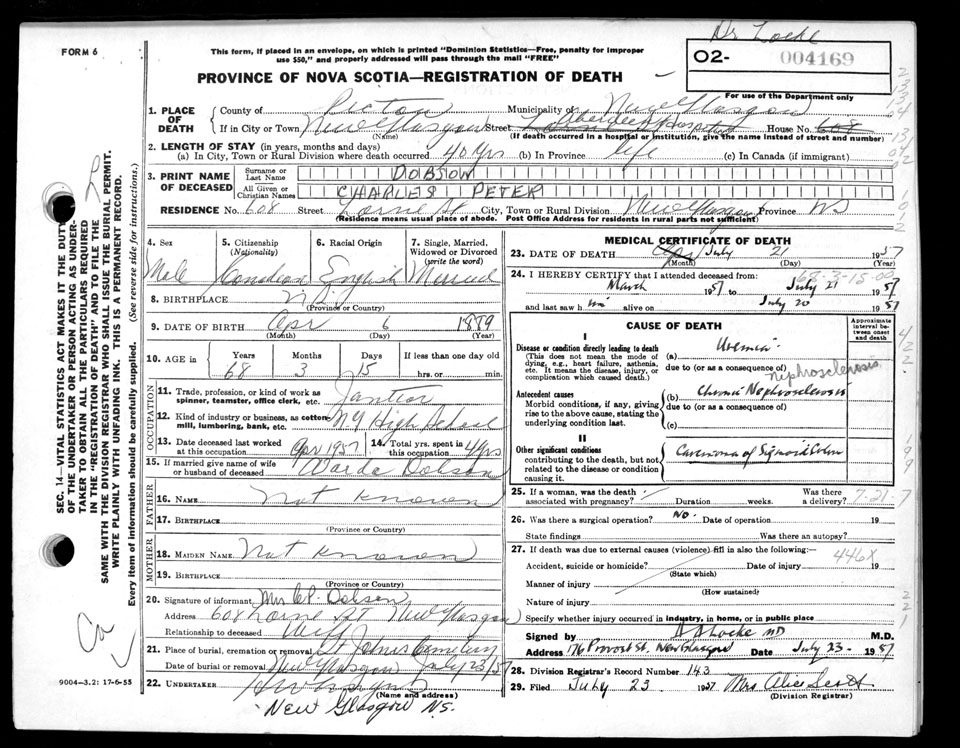 Dr Locke
FORM 6
This form, if placed in an envelope, on which is printed "Dominion Statistics—Free, penalty for improper
use $50," and properly addressed will pass through the mail "FREE"
O2- 004169
For use of the Department only
PROVINCE OF NOVA SCOTIA—REGISTRATION OF DEATH
1. PLACE OF DEATH
County of Pictou Municipality of New Glasgow
If in City or Town New Glasgow Street Aberdeen Hospital House No. 608
(Name) (If death occurred in a hospital or institution, give the name instead of street and number)
2. LENGTH OF STAY (in years, months and days)
(a) In City, Town or Rural Division where death occurred 40 yrs (b) In Province life (c) In Canada (if immigrant)
3. PRINT NAME OF DECEASED
Surname or Last Name DOBSON
All Given or Christian Names CHARLES PETER
RESIDENCE No. 608 Street Lorne St City, Town or Rural Division New Glasgow Province NS
(Residence means usual place of abode. Post Office Address for residents in rural parts not sufficient)
4. Sex Male
5. Citizenship (Nationality) Canadian
6. Racial Origin English
7. Single, Married, Widowed or Divorced (write the word) Married
8. BIRTHPLACE N S
(Province or Country)
9. DATE OF BIRTH Apr 6 1889
(Month) (Day) (Year)
10. AGE in Years Months Days If less than one day old
68 3 15 hrs. or min.
OCCUPATION
11. Trade, profession, or kind of work as spinner, teamster, office clerk, etc. Janitor
12. Kind of industry or business, as cotton-mill, lumbering, bank, etc. N G High School
13. Date deceased last worked at this occupation Apr 1957
14. Total yrs. spent in this occupation 4 yrs
15. If married give name of wife or husband of deceased Dobson
FATHER
16. NAME Not Known
17. BIRTHPLACE
(Province or Country)
MOTHER
18. MAIDEN NAME Not Known
19. BIRTHPLACE
(Province or Country)
20. Signature of informant Mrs C.P. Dobson
Address 608 Lorne St New Glasgow
Relationship to deceased Wife
21. Place of burial, cremation or removal St Johns Cemetery
Date of burial or removal New Glasgow July 23/57
22. UNDERTAKER
(Name and address)
New Glasgow NS.
9004—3.2: 17-6-55
SEC. 14—VITAL STATISTICS ACT MAKES IT THE DUTY
OF THE UNDERTAKER OR PERSON ACTING AS UNDER-
TAKER TO OBTAIN ALL THE PARTICULARS REQUIRED
IN THE "REGISTRATION OF DEATH" AND TO FILE THE
SAME WITH THE DIVISION REGISTRAR WHO SHALL ISSUE THE BURIAL PERMIT.
WRITE PLAINLY WITH UNFADING INK. THIS IS A PERMANENT RECORD.
Every item of information should be carefully supplied. (See reverse side for instructions.)
MEDICAL CERTIFICATE OF DEATH
23. DATE OF DEATH July 21 1957
(Month) (Day) (Year)
68-3-15-00
24. I HEREBY CERTIFY that I attended deceased from:
March 1957 to July 21 1957
and last saw h im alive on July 20 1957
CAUSE OF DEATH
Approximate interval between onset and death
I
Disease or condition directly leading to death
(This does not mean the mode of dying, e.g., heart failure, asthenia, etc. It means the disease, injury, or complication which caused death.)
(a) Uremia
due to (or as a consequence of)
Nephrosclerosis
Antecedent causes
Morbid conditions, if any, giving rise to the above cause, stating the underlying condition last.
(b) Chronic Nephrosclerosis
due to (or as a consequence of)
(c)
II
Other significant conditions
contributing to the death, but not related to the disease or condition causing it.
Carcinoma of Sigmoid Colon
25. If a woman, was the death associated with pregnancy? Duration weeks. Was there a delivery?
7-21-7
26. Was there a surgical operation? No. Date of operation 19
State findings Was there an autopsy?
27. If death was due to external causes (violence) fill in also the following:—
446X
Accident, suicide or homicide? Date of injury 19
(State which)
Manner of injury
(How sustained)
Nature of injury
Specify whether injury occurred in industry, in home, or in public place
Signed by Locke MD M.D.
Address 176 Provost St. New Glasgow Date July 23 1957
28. Division Registrar's Record Number 143
29. Filed July 23 1957 Mrs Alice Scott
(Division Registrar)